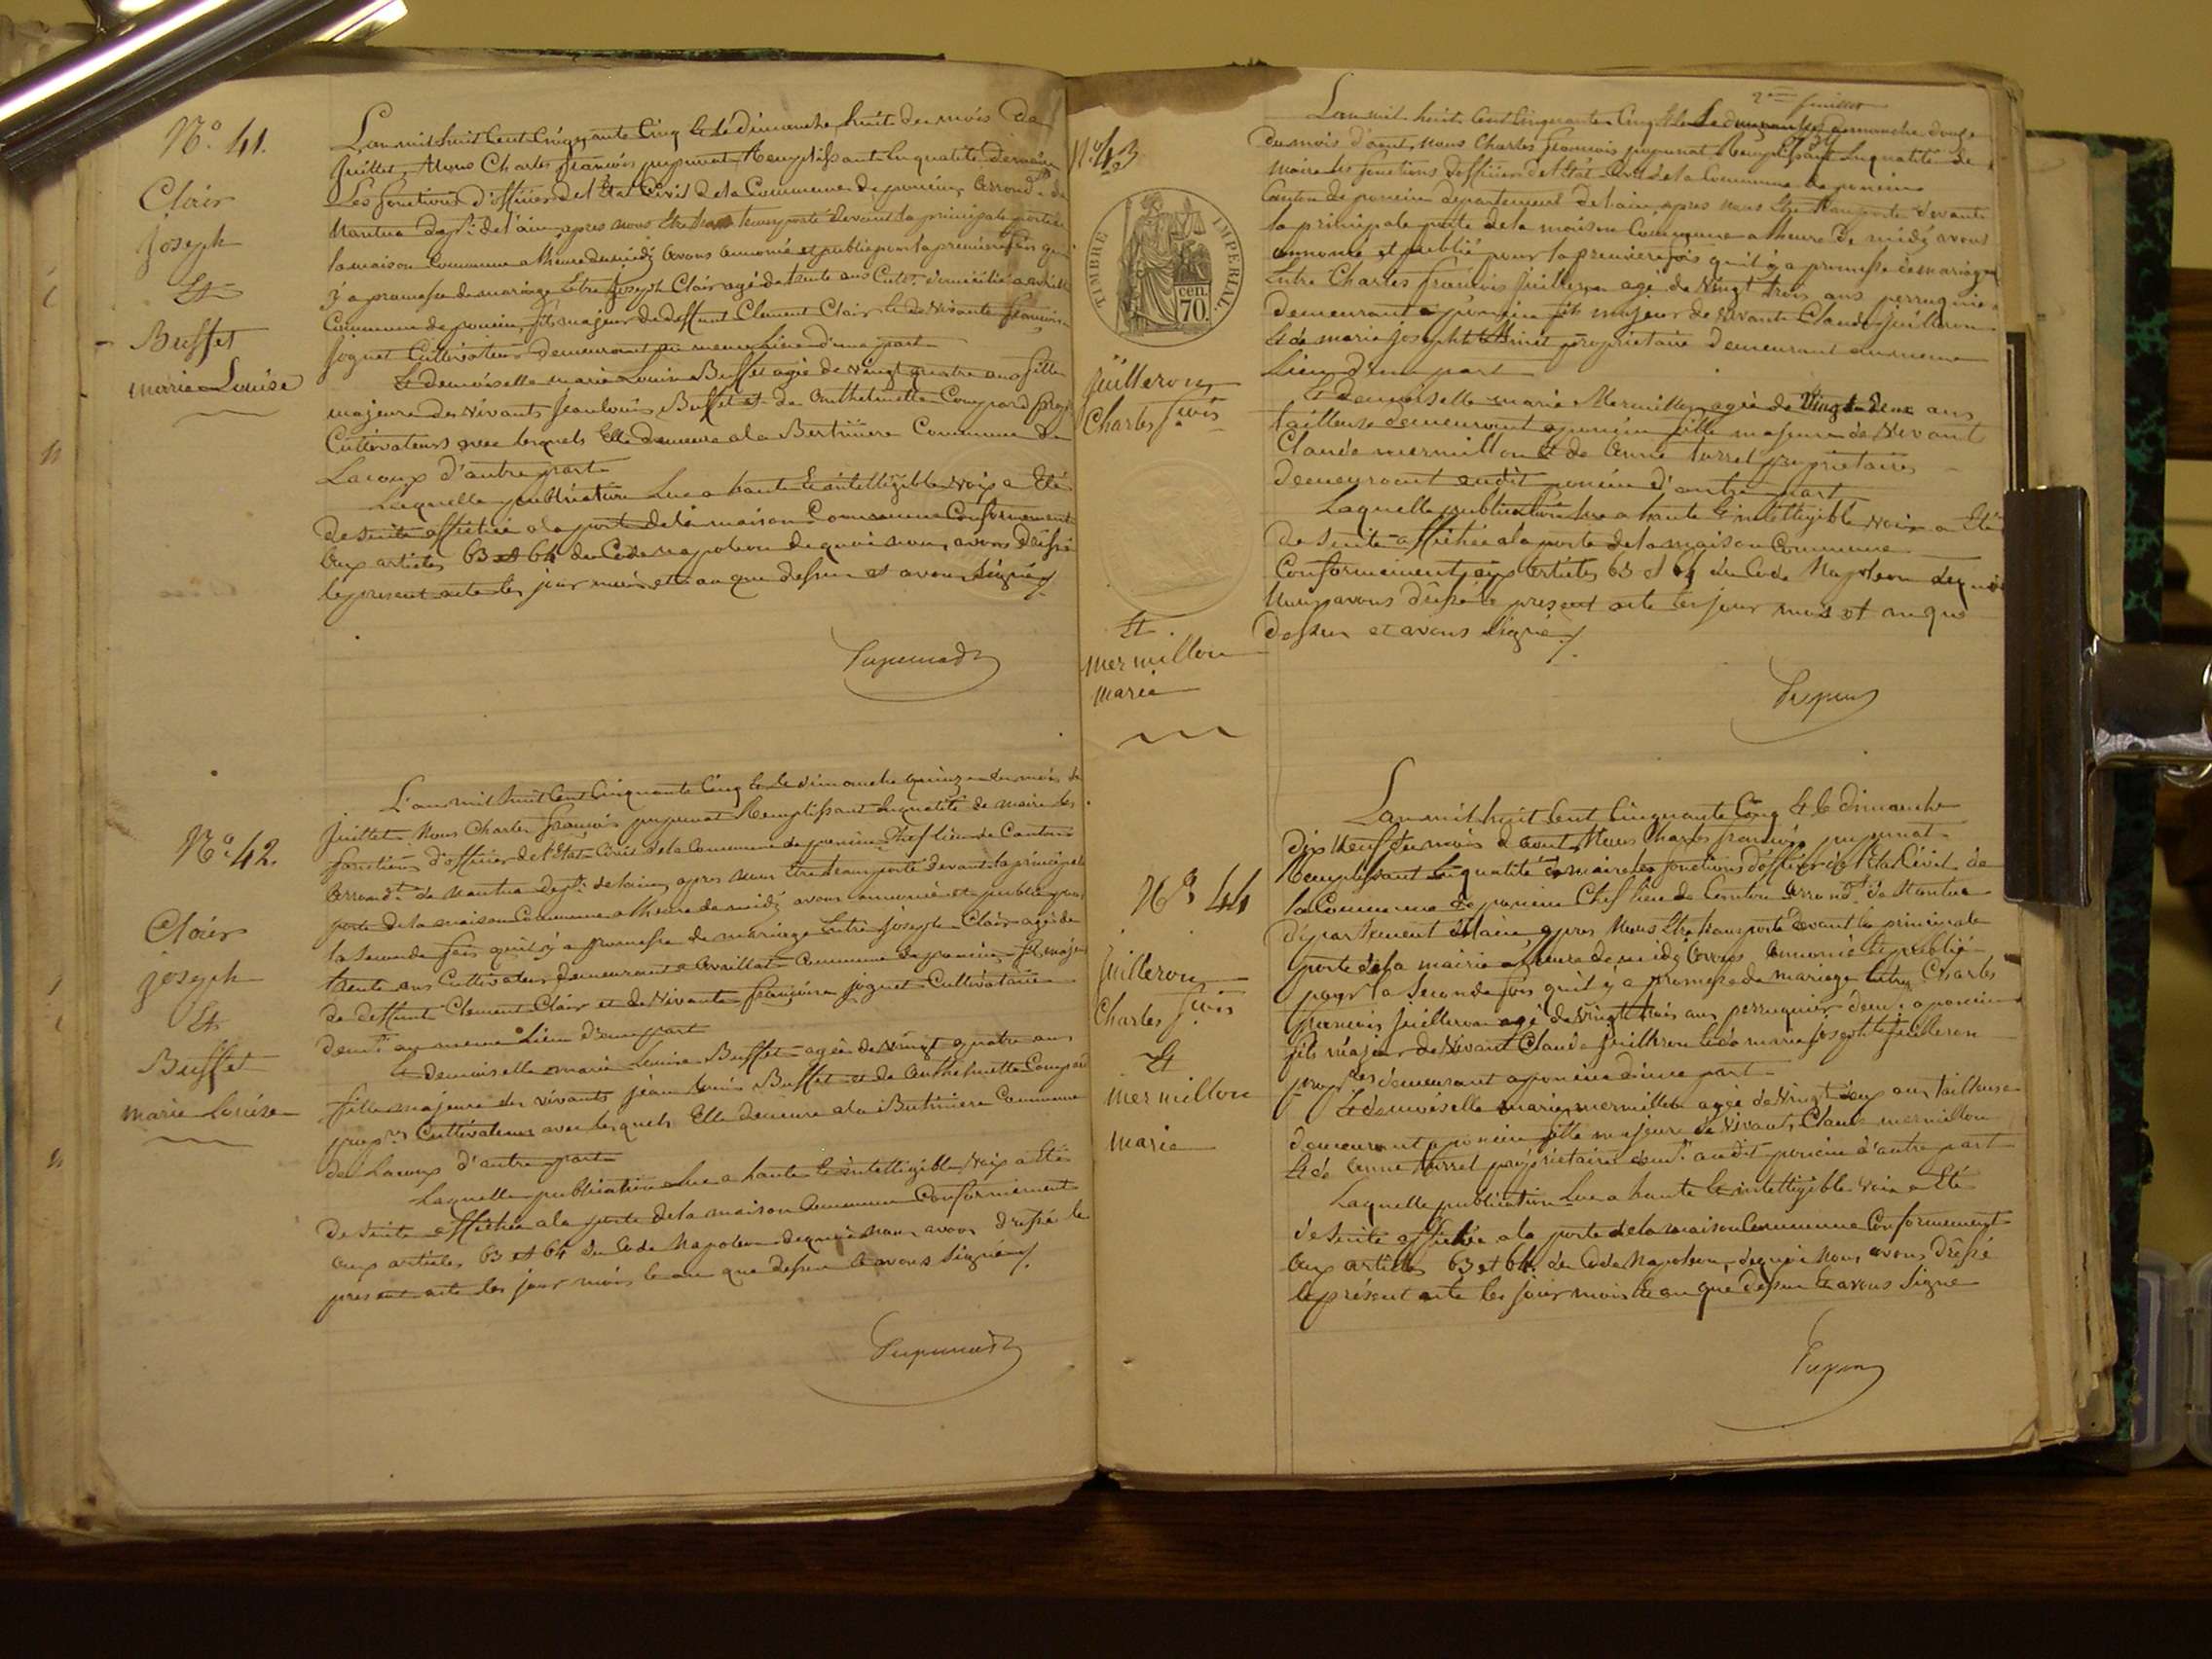 N° 41.
Clair
joseph
Et
Buffet
marie Louise
L'an mil huit Cent Cinquante Cinq Et Le dimanche huit du mois de
juillet, Nous Charles françois pupunat Remplissant En qualité de maire
Les fonctions d'officier de l'Etat Civil de la Commune de poncin, arrond.t de
Nantua dep.t de l'ain, apres nous Etre transporté devant la principale porte de
la maison Commune a lheure de midi avons annoncé et publié pour la premiere fois qu'il
y a promesse de mariage Entre joseph Clair agé de trente ans Cult.r domicilié a avrillat
Commune de poncin, fils majeur de deffunt Clement Clair Et de vivante françoise
joguet Cultivateur demeurant au meme Lieu d'une part
Et demoiselle marie Louise Buffet agée de vingt quatre ans fille
majeure des vivants jean Louis Buffet et de Anthelmette Compard prop.res
Cultivateurs avec lesquels Elle demeure a la Bertiniere Commune de
Lacoux d'autre part
Laquelle publication Lue a haute Et intelligible voix a Eté
de suite affichée a la porte de la maison Commune Conformement
aux articles 63 et 64 du Code napoleon de quoi nous avons dressé
le present acte les jour mois et an que dessus et avons signé
Pupunat
N° 42.
Clair
joseph
Et
Buffet
marie Louise
L'an mil huit Cent Cinquante Cinq Et Le dimanche quinze du mois de
juillet Nous Charles françois pupunat Remplissant En qualité de maire les
fonctions d'officier de l'Etat Civil de la Commune de poncin Chef lieu de Canton
arrond.t de Nantua dep.t de lain, apres nous Etre transporté devant la principale
porte de la maison Commune a lheure de midi avons annoncé et publié pour
la seconde fois qu'il y a promesse de mariage Entre joseph Clair agé de
trente ans Cultivateur demeurant a avrillat Commune de poncin, fils majeur
de deffunt Clement Clair et de vivante françoise joguet Cultivatrice
dem.t au meme Lieu d'une part
Et demoiselle marie Louise Buffet agée de vingt quatre ans
fille majeure des vivants jean Louis Buffet et de Anthelmette Compard
prop.res Cultivateurs avec lesquels Elle demeure a la Bertiniere Commune
de Lacoux d'autre part
Laquelle publication Lue a haute Et intelligible voix a Eté
de suite affichée a la porte de la maison Commune Conformement
aux articles 63 et 64 du Code Napoleon de quoi nous avons dressé le
present acte les jour mois Et an que dessus Et avons signé
Pupunat
2me feuillet
N° 43
TIMBRE IMPERIAL
70 cen.
juilleron
Charles f.cois
Et
mermillon
marie
L'an mil huit Cent Cinquante Cinq Et Le dimanche douze
du mois d'aout, nous Charles françois pupunat Remplissant En qualité de
maire Les fonctions d'officier de l'Etat Civil de la Commune de poncin
Canton de poncin departement de l'ain, apres nous Etre transporté devant
la principale porte de la maison Commune a lheure de midi avons
annoncé et publié pour la premiere fois qu'il y a promesse de mariage
Entre Charles françois juilleron agé de vingt trois ans perruquier
demeurant a poncin fils majeur de vivant Claude juilleron
Et de marie josephte proprietaire demeurant au meme
Lieu d'une part
Et demoiselle marie Mermillon agée de vingt deux ans
tailleuse demeurant a poncin fille majeure de vivant
Claude mermillon Et de Anne turrel proprietaires
demeurant audit poncin d'autre part
Laquelle publication Lue a haute Et intelligible voix a Eté
de suite affichée a la porte de la maison Commune
Conformement aux articles 63 et 64 du Code Napoleon de quoi
Nous avons dressé le present acte les jour mois et an que
dessus et avons signé
Pupun
N° 44
juilleron
Charles f.cois
Et
mermillon
marie
L'an mil huit Cent Cinquante Cinq Et le dimanche
dix neuf du mois d'aout, Nous Charles francois pupunat
Remplissant En qualité de maire les fonctions d'officier de l'Etat Civil de
la Commune de poncin Chef lieu de Canton arrond.t de Nantua
departement de l'ain, apres Nous Etre transporté devant la principale
porte de la mairie a lheure de midi avons annoncé Et publié
pour la seconde fois qu'il y a promesse de mariage Entre Charles
francois juilleron agé de vingt trois ans perruquier dem.t a poncin
fils majeur de vivant Claude juilleron Et de marie josephte juilleron
prop.res demeurant a poncin d'une part
Et demoiselle marie mermillon agée de vingt deux ans tailleuse
demeurant a poncin fille majeure de vivant Claude mermillon
Et de Anne turrel proprietaires dem.t audit poncin d'autre part
Laquelle publication Lue a haute Et intelligible voix a Eté
de suite affichée a la porte de la maison Commune Conformement
aux articles 63 et 64 du Code Napoleon, de quoi Nous avons dressé
le présent acte les jour mois Et an que dessus Et avons signé
Pupun